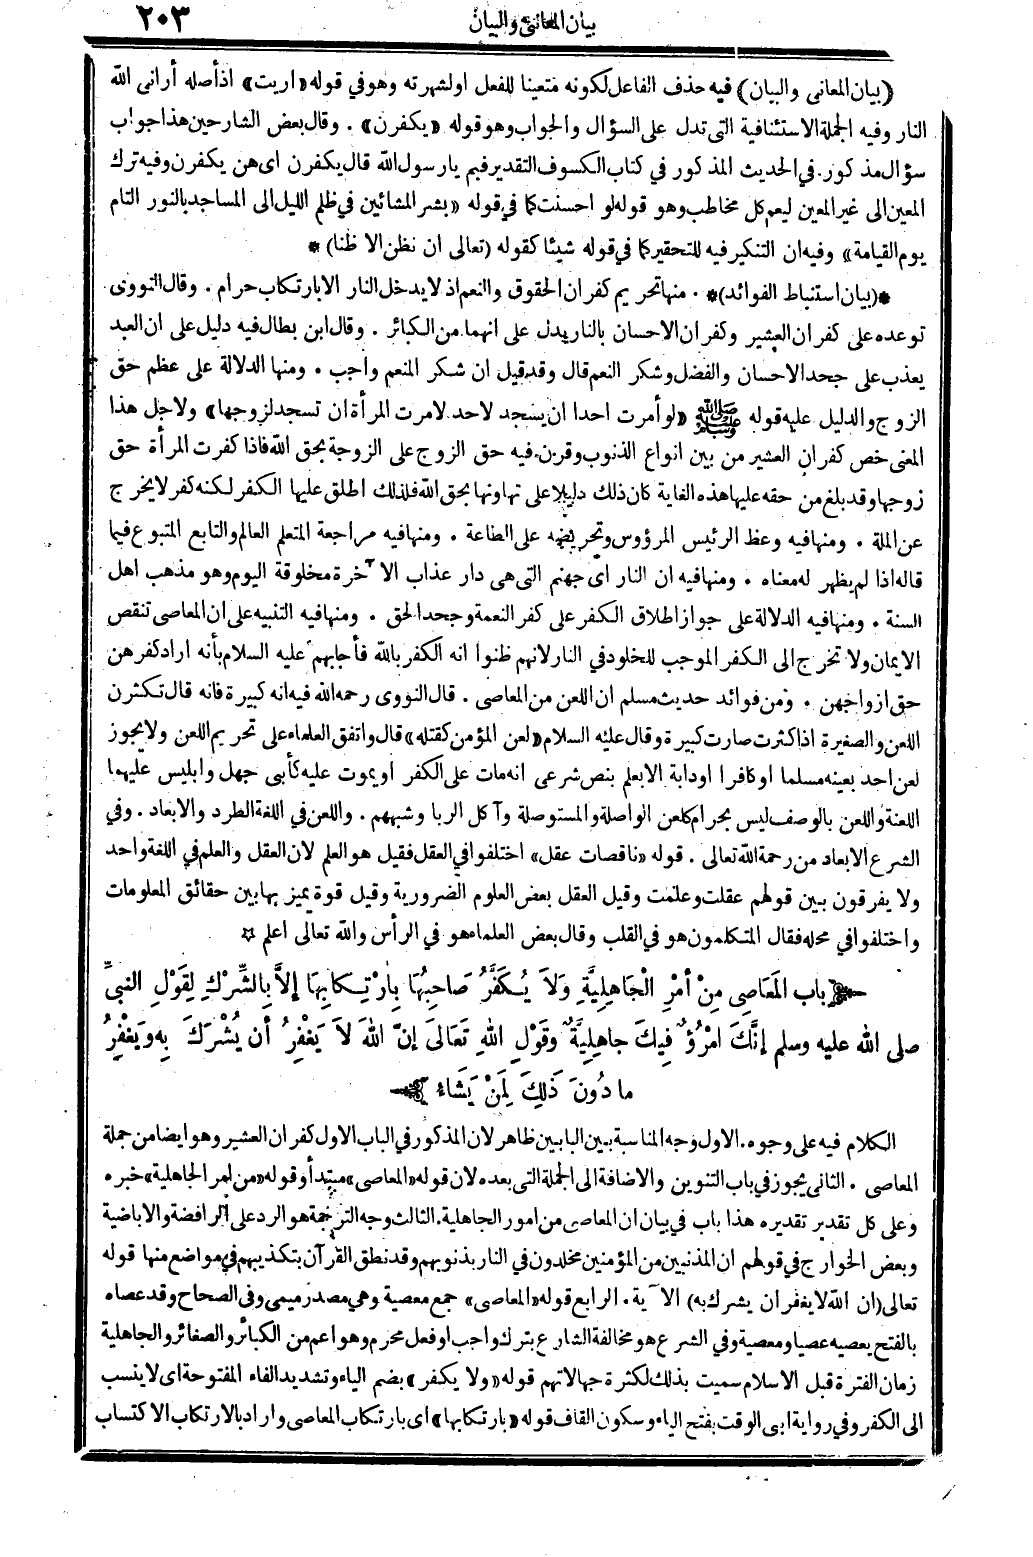 بيان المعانى والبيان ٢٠٣
(بيان المعانى والبيان) فيه حذف الفاعل لكونه متعينا للفعل او لشهرته وهو فى قوله «اريت» اذ أصله أرانى الله
النار وفيه الجملة الاستئنافية التى تدل على السؤال والجواب وهو قوله «يكفرن» . وقال بعض الشارحين هذا جواب
سؤال مذكور . في الحديث المذكور في كتاب الكسوف التقدير فبم يارسول الله قال يكفرن اى هن يكفرن وفيه ترك
المعين الى غير المعين ليعم كل مخاطب وهو قوله لو احسنت كما في قوله «بشر المشائين في ظلم الليل الى المساجد بالنور التام
يوم القيامة» وفيه ان التنكير فيه للتحقير كما في قوله شيئا كقوله (تعالى ان نظن الا ظنا) *
*(بيان استنباط الفوائد)* . منها تحريم كفران الحقوق والنعم اذ لا يدخل النار الا بارتكاب حرام . وقال النووى
توعده على كفران العشير وكفران الاحسان بالنار يدل على انهما من الكبائر . وقال ابن بطال فيه دليل على ان العبد
يعذب على جحد الاحسان والفضل وشكر النعم قال وقد قيل ان شكر المنعم واجب . ومنها الدلالة على عظم حق
الزوج والدليل عليه قوله ﷺ «لو أمرت احدا ان يسجد لاحد لامرت المرأة ان تسجد لزوجها» ولاجل هذا
المعنى خص كفران العشير من بين انواع الذنوب وقرن فيه حق الزوج على الزوجة بحق الله فاذا كفرت المرأة حق
زوجها وقد بلغ من حقه عليها هذه الغاية كان ذلك دليلا على تهاونها بحق الله فلذلك اطلق عليها الكفر لكنه كفر لا يخرج
عن الملة . ومنها فيه وعظ الرئيس المرؤوس وتحريضه على الطاعة . ومنها فيه مراجعة المتعلم العالم والتابع المتبوع فيما
قاله اذا لم يظهر له معناه . ومنها فيه ان النار اى جهنم التى هى دار عذاب الآخرة مخلوقة اليوم وهو مذهب اهل
السنة . ومنها فيه الدلالة على جواز اطلاق الكفر على كفر النعمة وجحد الحق . ومنها فيه التنبيه على ان المعاصى تنقص
الايمان ولا تخرج الى الكفر الموجب للخلود في النار لانهم ظنوا انه الكفر بالله فأجابهم عليه السلام بأنه اراد كفرهن
حق ازواجهن . ومن فوائد حديث مسلم ان اللعن من المعاصى . قال النووى رحمه الله فيه انه كبيرة فانه قال تكثرن
اللعن والصغيرة اذا كثرت صارت كبيرة وقال عليه السلام «لعن المؤمن كقتله» قال واتفق العلماء على تحريم اللعن ولا يجوز
لعن احد بعينه مسلما او كافرا او دابة الا بعلم بنص شرعى انه مات على الكفر او يموت عليه كأبى جهل وابليس عليهما
اللعنة واللعن بالوصف ليس بحرام كلعن الواصلة والمستوصلة وآكل الربا وشبههم . واللعن في اللغة الطرد والابعاد . وفي
الشرع الابعاد من رحمة الله تعالى . قوله «ناقصات عقل» اختلفوا في العقل فقيل هو العلم لان العقل والعلم في اللغة واحد
ولا يفرقون بين قولهم عقلت وعلمت وقيل العقل بعض العلوم الضرورية وقيل قوة يميز بها بين حقائق المعلومات
واختلفوا في محله فقال المتكلمون هو في القلب وقال بعض العلماء هو في الرأس والله تعالى اعلم ☆
باب المَعَاصِى مِنْ أَمْرِ الْجَاهِلِيَّةِ وَلاَ يُكَفَّرُ صَاحِبُهَا بِارْتِكَابِهَا إِلاَّ بِالشِّرْكِ لِقَوْلِ النبىِّ
صلى الله عليه وسلم إِنَّكَ امْرُؤٌ فِيكَ جاهِلِيَّةٌ وَقَوْلِ اللهِ تَعَالَى إِنَّ اللهَ لاَ يَغْفِرُ أن يُشْرَكَ بِهِ وَيَغْفِرُ
ما دُونَ ذَلِكَ لِمَنْ يَشَاءُ
الكلام فيه على وجوه . الاول وجه المناسبة بين البابين ظاهر لان المذكور في الباب الاول كفران العشير وهو ايضا من جملة
المعاصى . الثانى يجوز في باب التنوين والاضافة الى الجملة التى بعده لان قوله «المعاصى» مبتدأ وقوله «من امر الجاهلية» خبره
وعلى كل تقدير تقديره هذا باب في بيان ان المعاصى من امور الجاهلية . الثالث وجه الترجمة هو الرد على الرافضة والاباضية
وبعض الخوارج في قولهم ان المذنبين من المؤمنين مخلدون في النار بذنوبهم وقد نطق القرآن بتكذيبهم في مواضع منها قوله
تعالى (ان الله لا يغفر ان يشرك به) الآية . الرابع قوله «المعاصى» جمع معصية وهى مصدر ميمى وفى الصحاح وقد عصاه
بالفتح يعصيه عصيا ومعصية وفي الشرع هو مخالفة الشارع بترك واجب او فعل محرم وهو اعم من الكبائر والصغائر والجاهلية
زمان الفترة قبل الاسلام سميت بذلك لكثرة جهالاتهم قوله «ولا يكفر» بضم الياء وتشديد الفاء المفتوحة اى لا ينسب
الى الكفر وفي رواية ابى الوقت بفتح الياء وسكون القاف قوله «بارتكابها» اى بارتكاب المعاصى واراد بالارتكاب الاكتساب